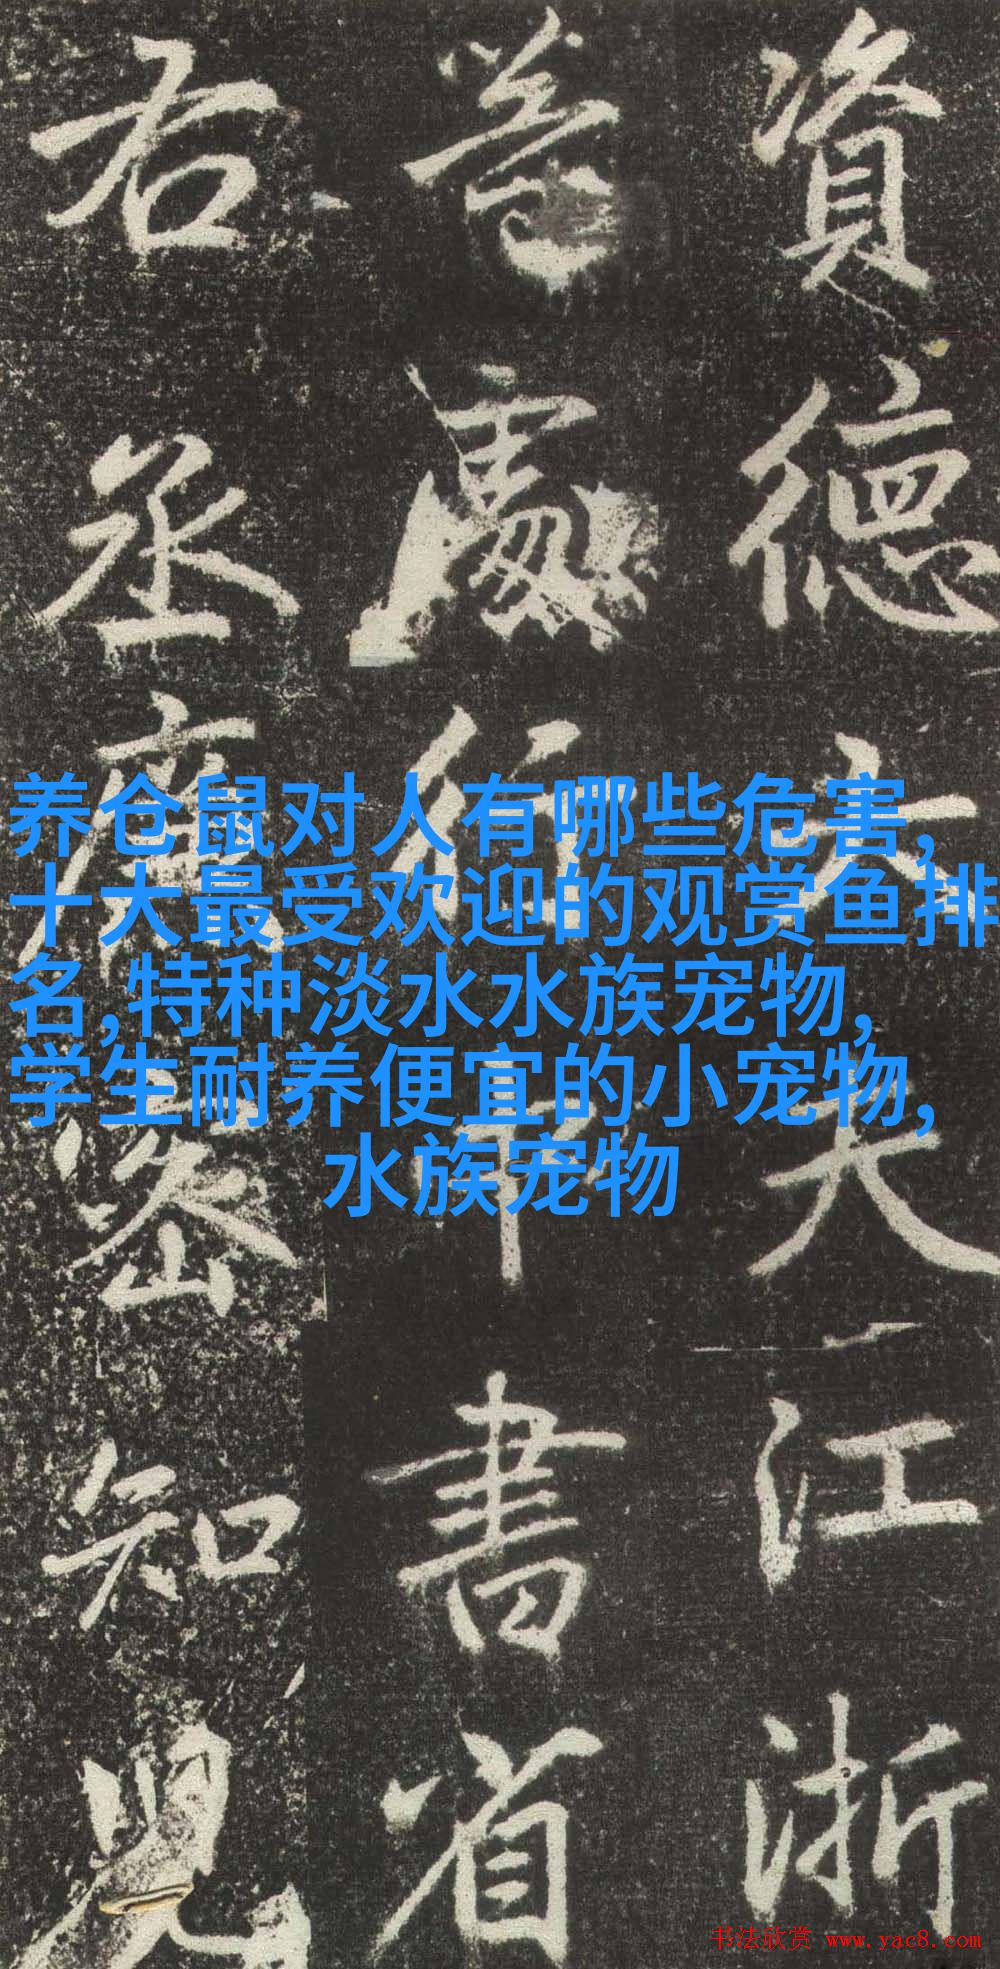 資德大夫江浙
等處行中書省
右丞廉密知兒
养仓鼠对人有哪些危害,
十大最受欢迎的观赏鱼排
名,特种淡水水族宠物,
学生耐养便宜的小宠物,
水族宠物
书法欣赏 www.yac8.com